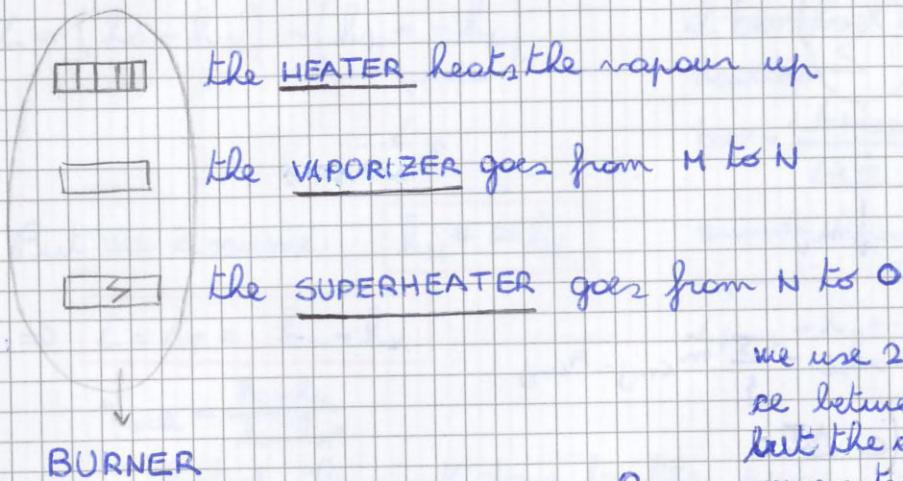 the HEATER heats the vapour up
the VAPORIZER goes from M to N
the SUPERHEATER goes from N to O
we use 2
ce betwe
but the
BURNER